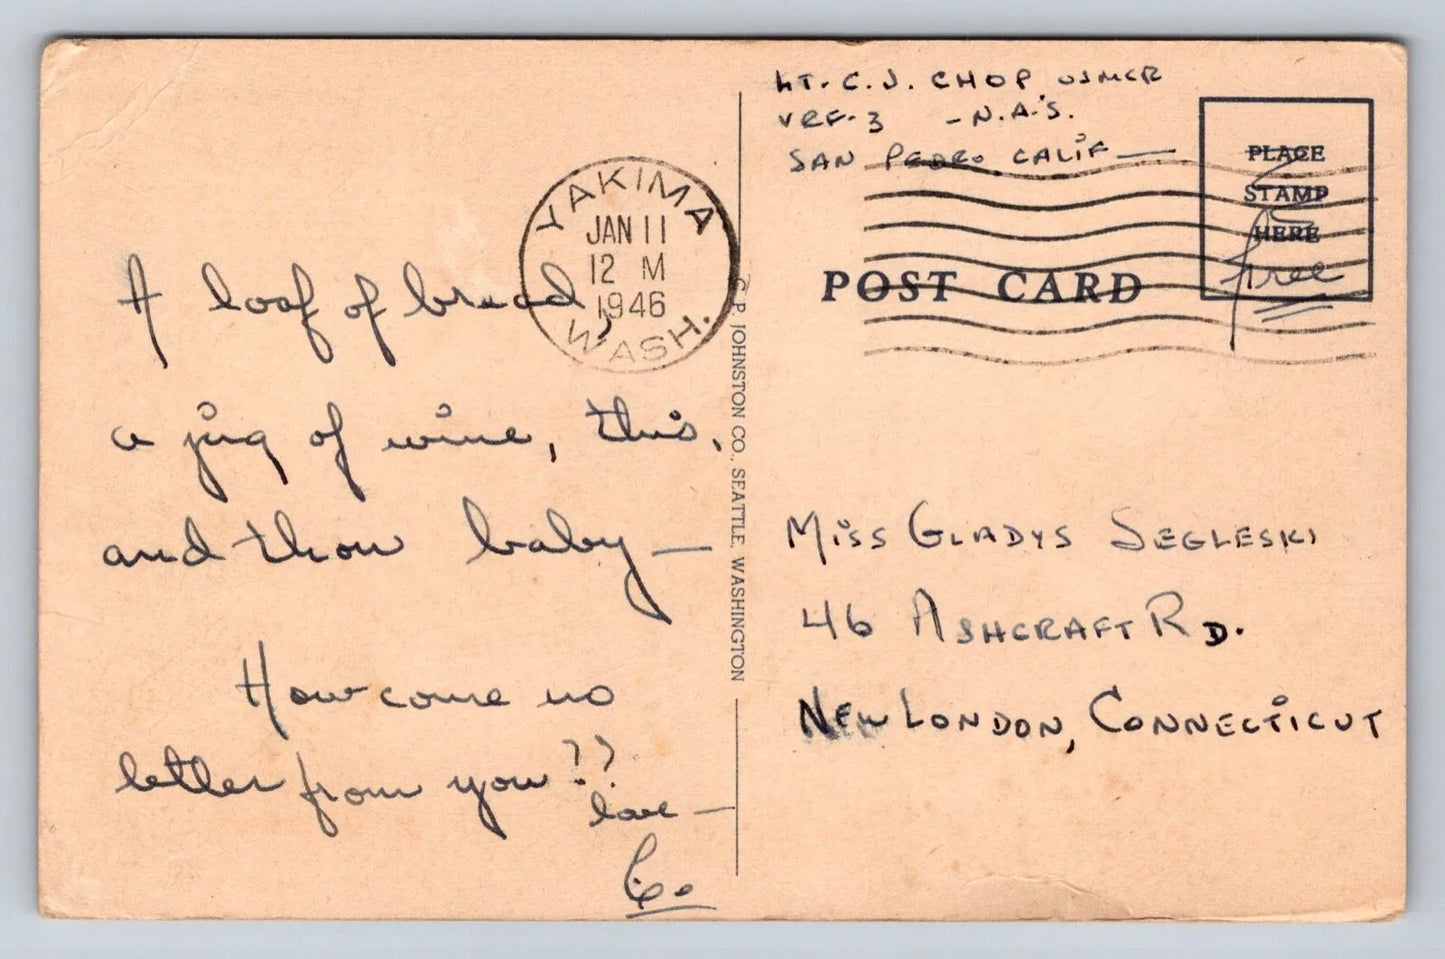 LT. C. J. CHOP USMCR
VRF-3 - N.A.S.
SAN PEDRO CALIF —
PLACE
STAMP
HERE
Free
YAKIMA
JAN 11
12 M
1946
WASH.
POST CARD
A loaf of bread,
a jug of wine, this,
and thou baby —
How come no
letter from you??
love —
C. P. JOHNSTON CO., SEATTLE, WASHINGTON
Miss GLADYS SEGLESKI
46 ASHCRAFT RD.
NEW LONDON, CONNECTICUT